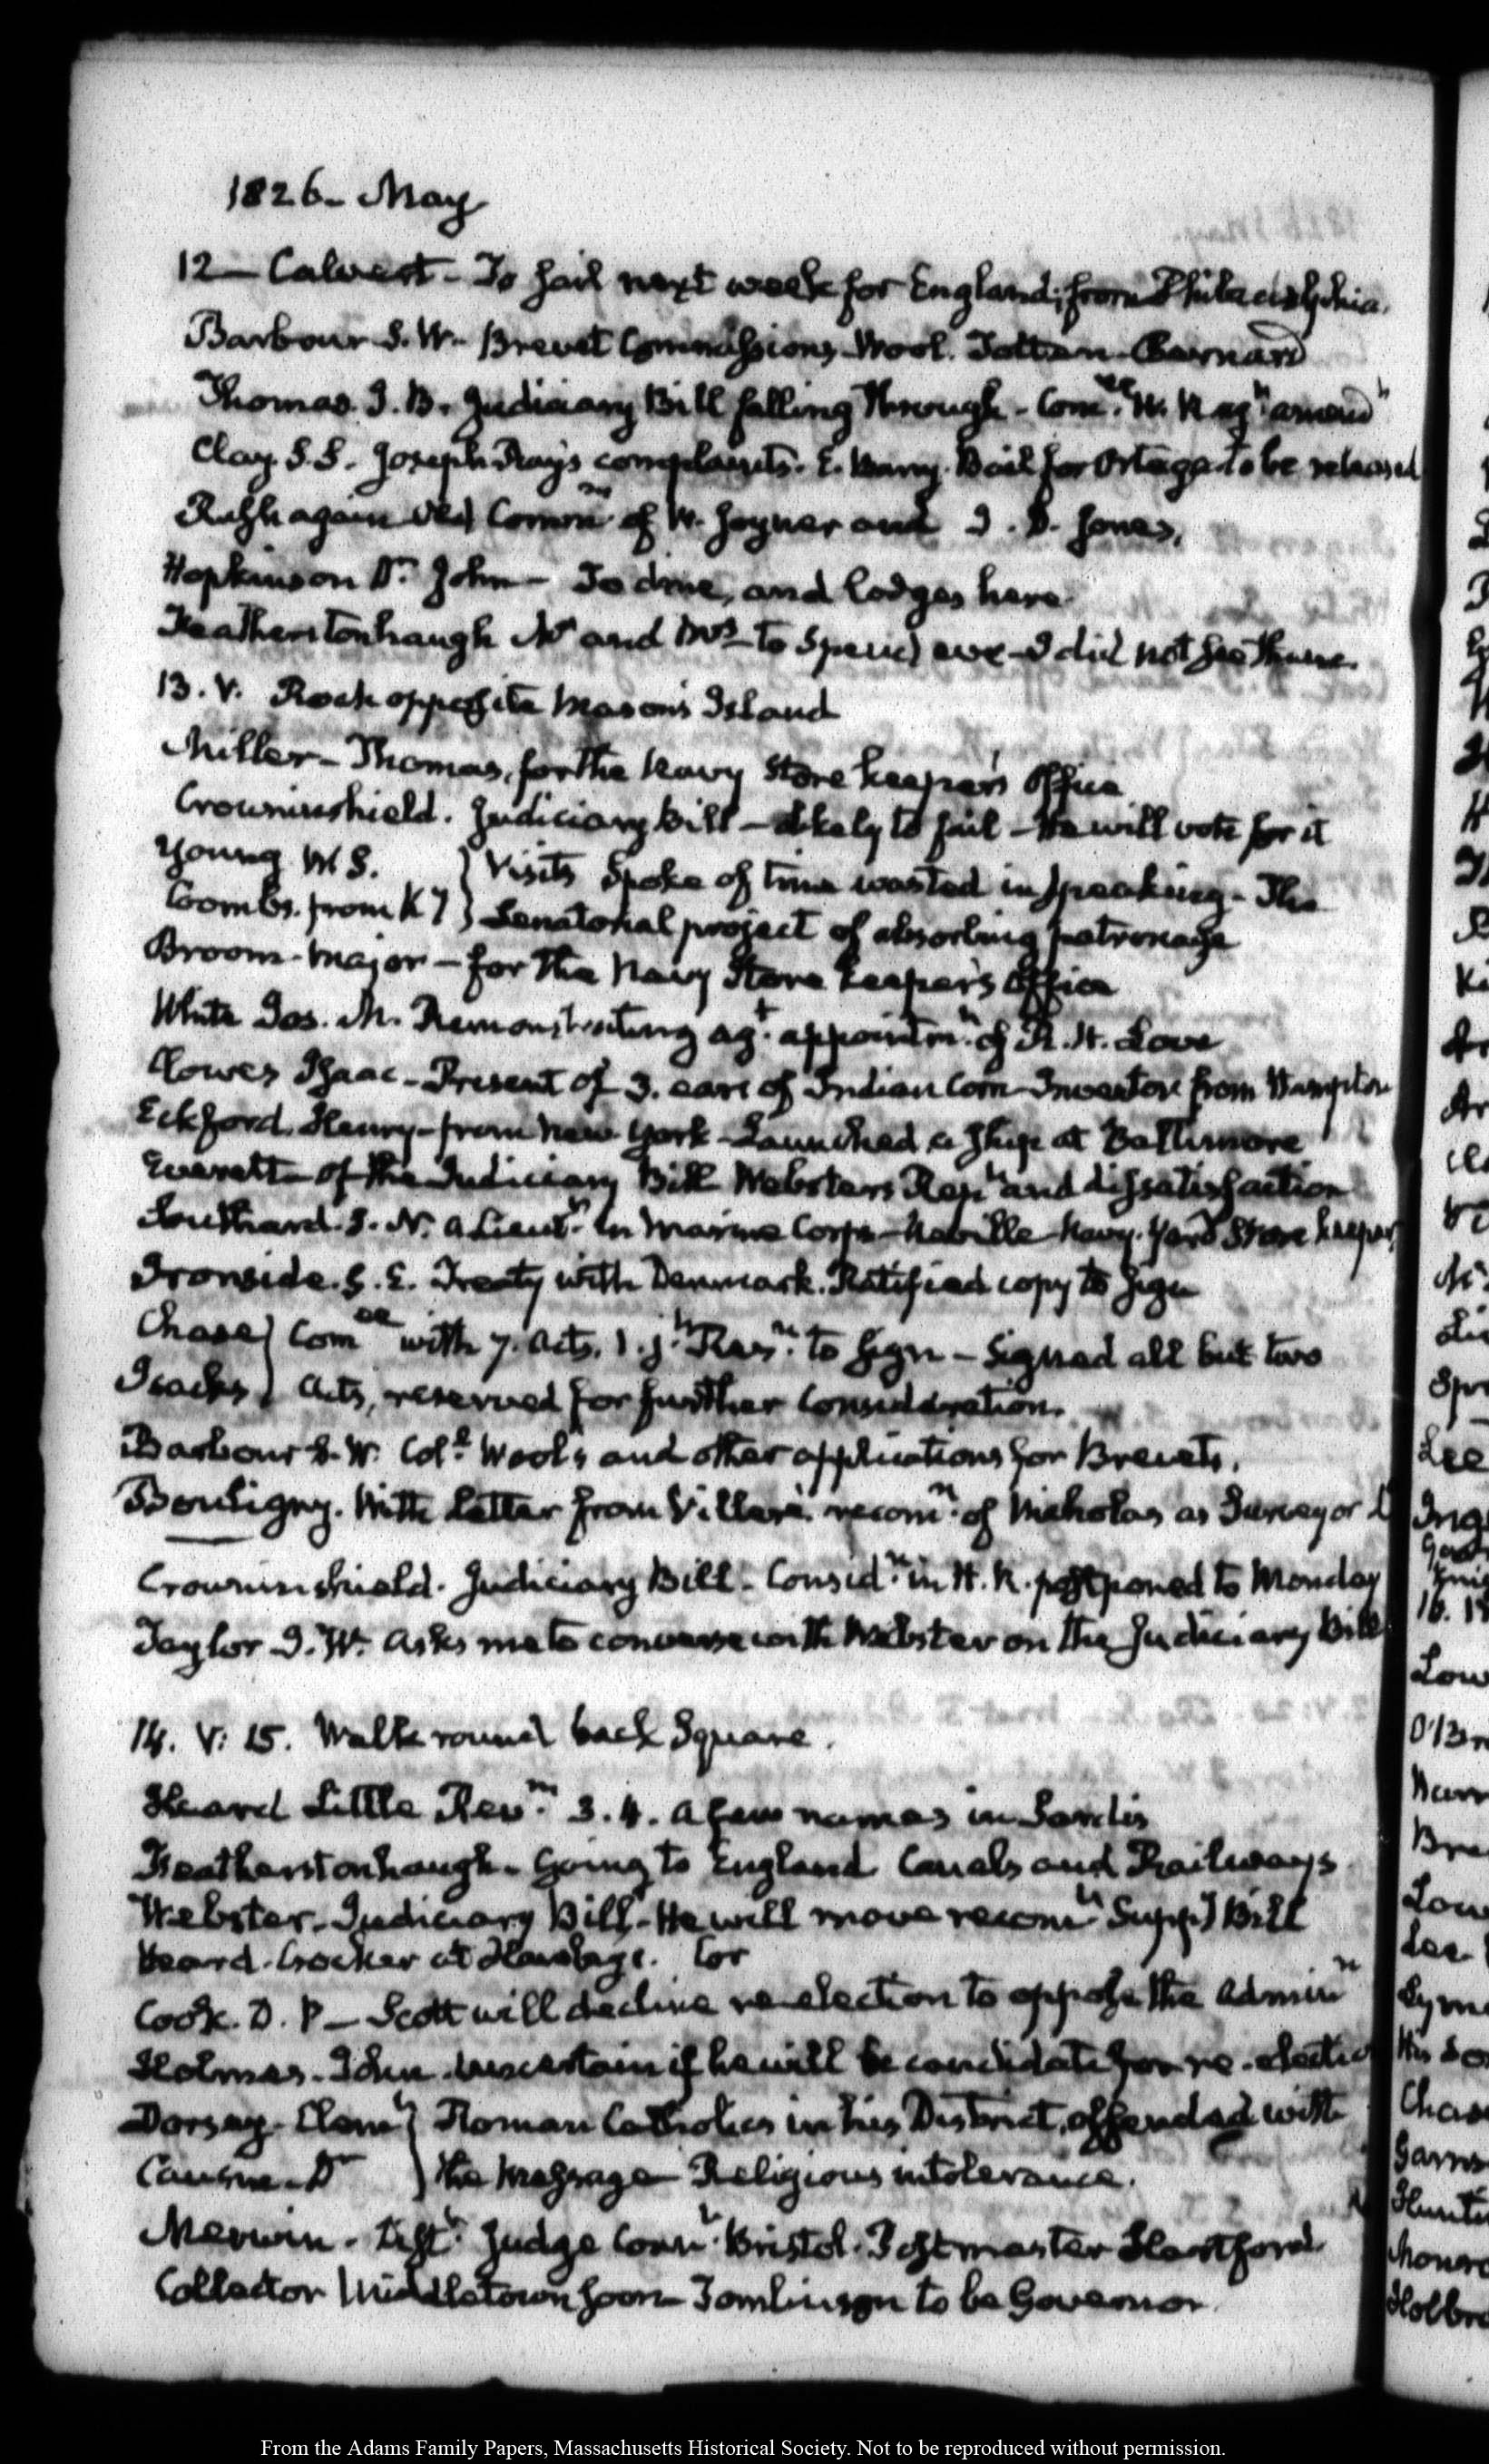 1826 - May
12 — Calvert - To sail next week for England; from Philadelphia.
Barbour S. W. - Brevet Commissions, Wool. Totten - Bernard
Thomas. J. B. Judiciary Bill falling through - Com.ee H. R ag.t amend.t
Clay. S.S. Joseph Ray's complaints. E. Barry. Bail for Ortega to be released
Rush again Comm.n of W. Joyner and J. D. Jones,
Hopkinson Dr. John - To dine, and lodges here
Featherstonhaugh Mr and Mrs - to spend eve - I did not see them.
13. V. Rock opposite Mason's Island
Miller - Thomas, for the Navy Store keeper's Office
Crowninshield. Judiciary Bill - likely to fail - He will vote for it
Young W S. } Visits Spoke of time wasted in speaking - The
Coombs. from K Y } Senatorial project of absorbing patronage
Broom - Major - for the Navy Store keeper's Office
White Jos. M. Remonstrating ag.t appointm.t of R. H. Love
Clowes Isaac - Present of 3. ears of Indian Corn - Inventor from Hampton
Eckford. Henry - from New York - Launched a Ship at Baltimore
Everett - of the Judiciary Bill Websters Rep.n and dissatisfaction
Southard. S. N. a Lieut.t in Marine Corps - Neville - Navy. Yard Store keeper
Ironside. G. E. Treaty with Denmark. Ratified copy to sign
Chase } Com.ee with 7. Acts. 1. j.t Res.n to sign - Signed all but two
Isacks } Acts, reserved for further Consideration.
Barbour S. W. Col.l Wool's and other applications for Brevets.
Bouligny. With letter from Villeré. recom.n of Nicholas as Surveyor
Crowninshield. Judiciary Bill - Consid.n in H. R. postponed to Monday
Taylor J. W. asks me to converse with Webster on the Judiciary Bill
14. V: 15. Walk round back Square.
Heard Little Rev.n 3. 4. a few names in Sardis
Featherstonhaugh - Going to England Canals and Railways
Webster - Judiciary Bill - He will move recom.t Supp.l Bill
Heard. Crocker at Cor
Cook. D. P - Scott will decline re-election to oppose the Admin.n
Holmes - John. uncertain if he will be candidate for re-election
Dorsey - Clem.t } Roman Catholics in his District, offended with
Causin - Dr } the Message - Religious intolerance.
Merwin. Dist.t Judge Conn.t Bristol. Postmaster Hartford.
Collector Middletown soon - Tomlinson to be Governor.
From the Adams Family Papers, Massachusetts Historical Society. Not to be reproduced without permission.